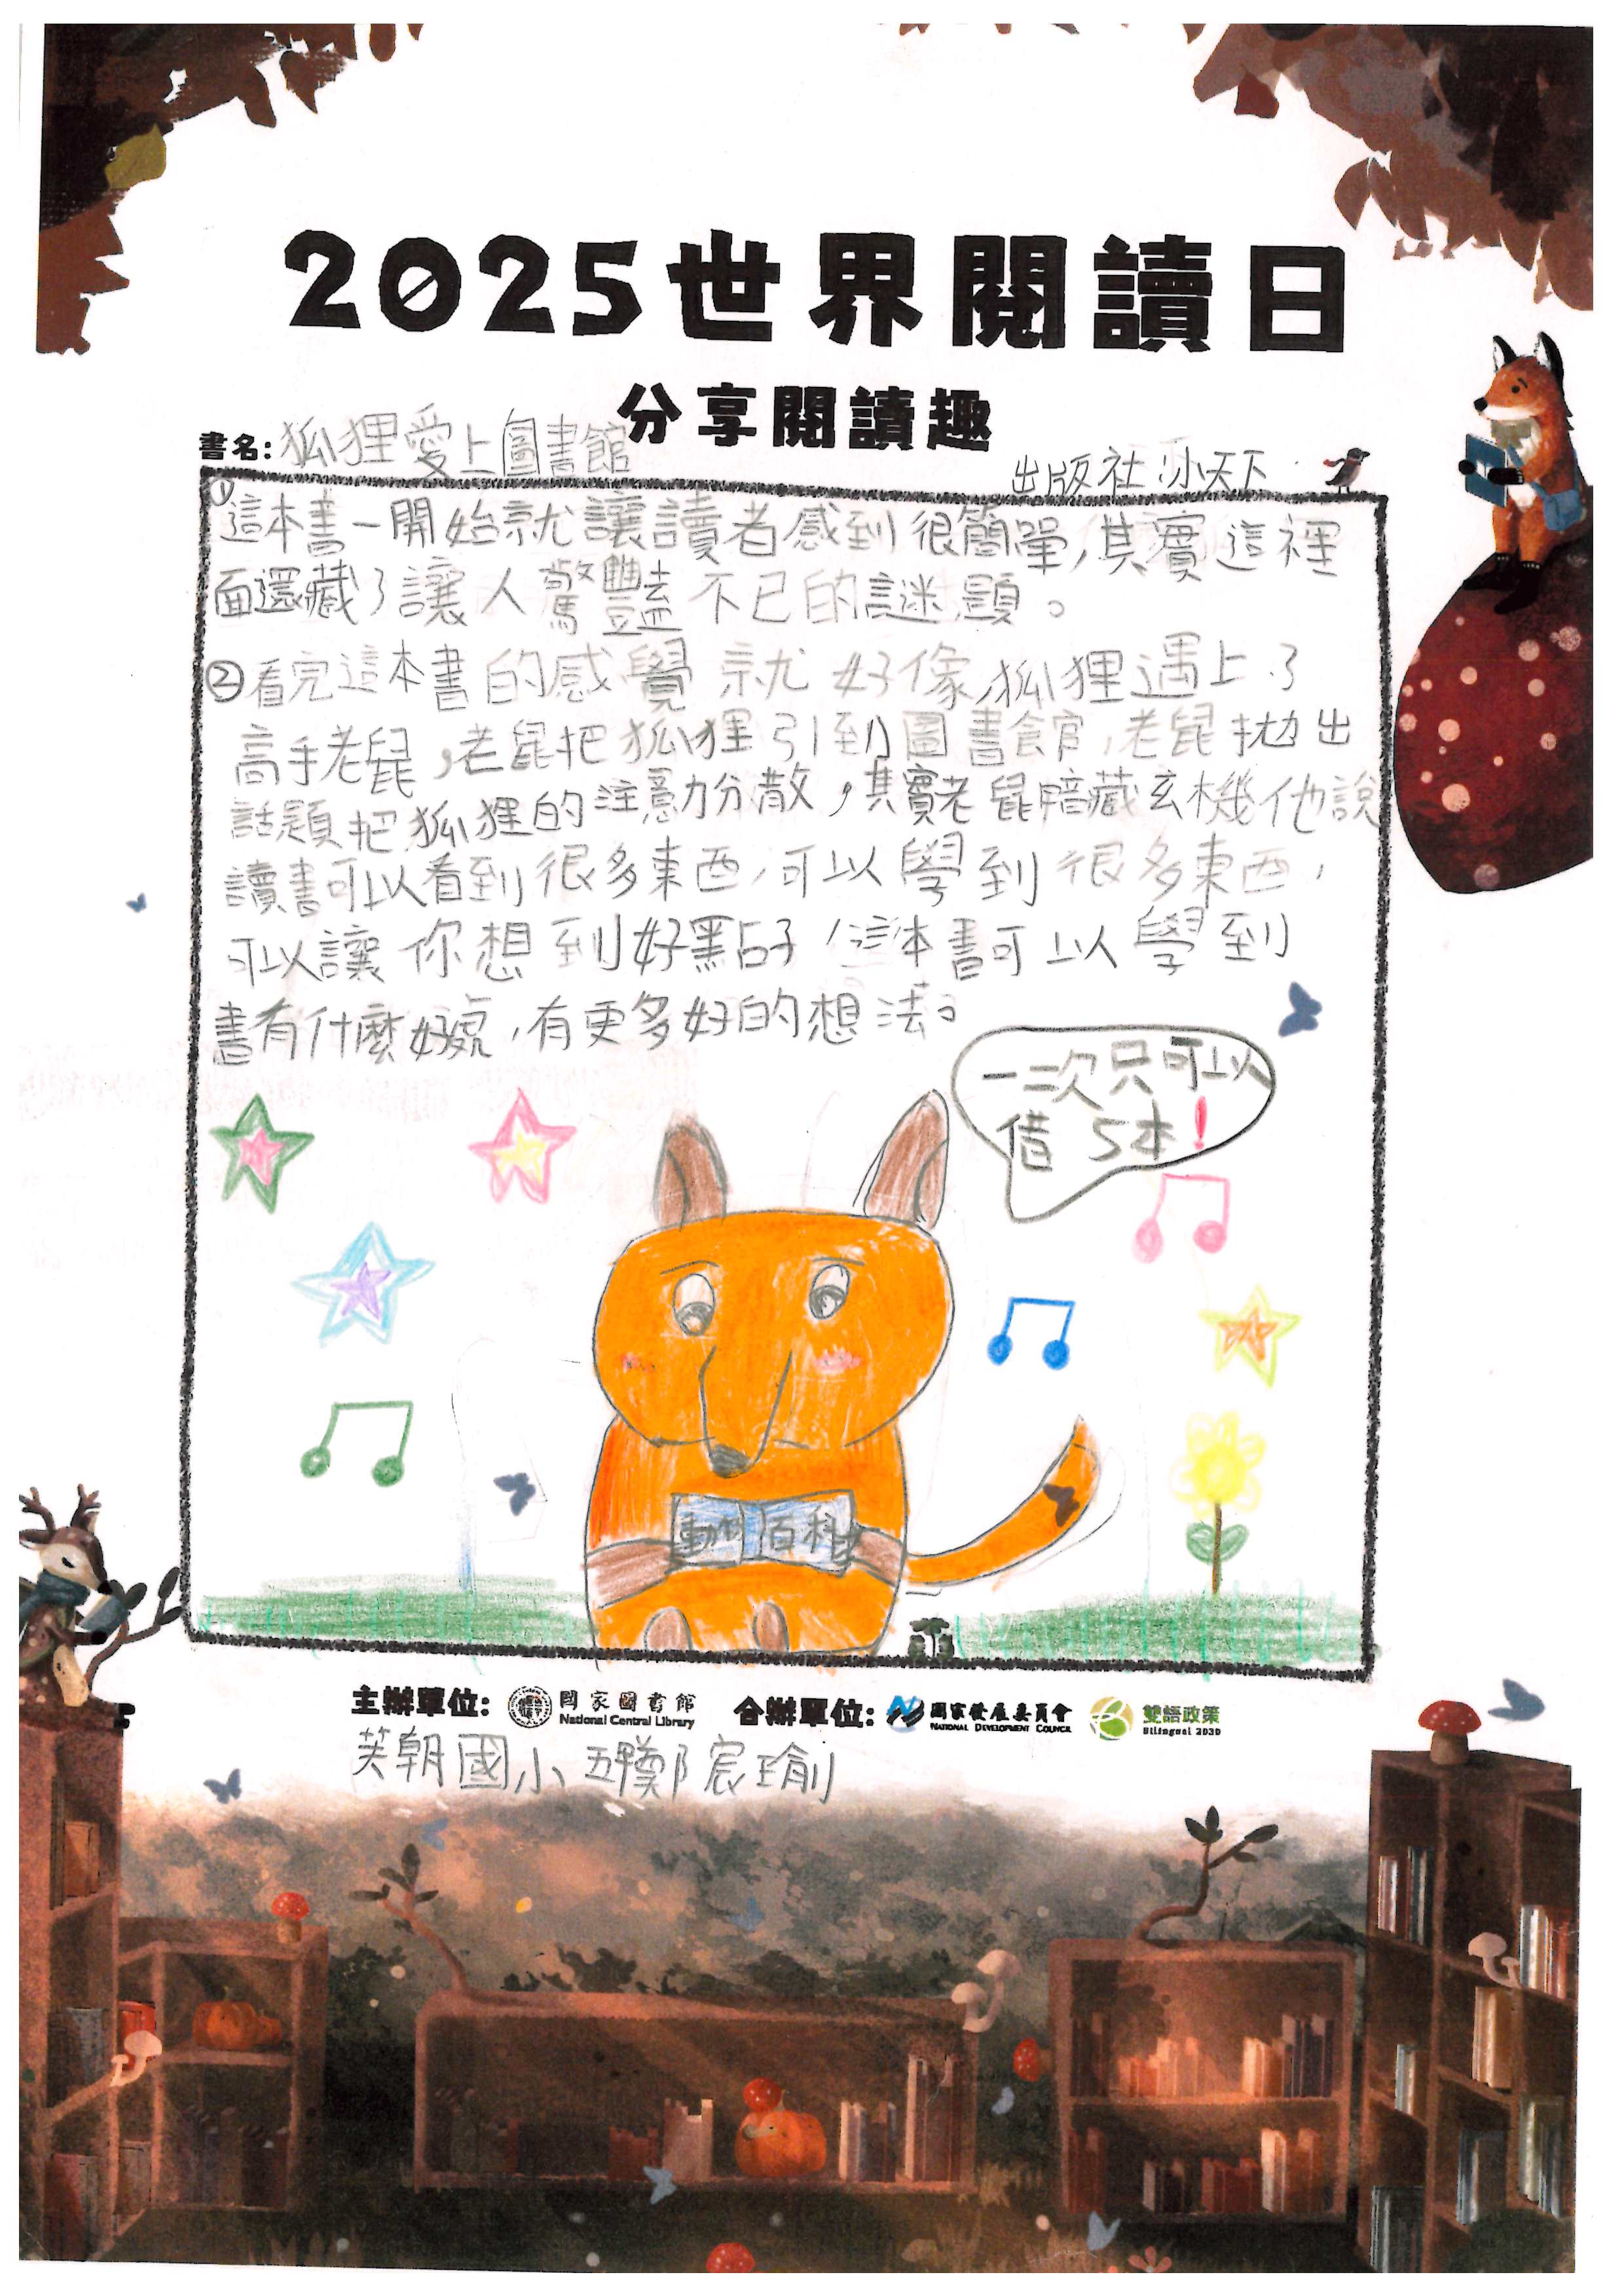 2025世界閱讀日
分享閱讀趣
書名: 狐狸愛上圖書館
出版社:小天下
①這本書一開始就讓讀者感到很簡單,其實這裡
面還藏了讓人驚豔不已的謎題。
②看完這本書的感覺就好像,狐狸遇上了
高手老鼠,老鼠把狐狸引到圖書館,老鼠拋出
話題把狐狸的注意力分散,其實老鼠暗藏玄機他說
讀書可以看到很多東西,可以學到很多東西,
可以讓你想到好點子,這本書可以學到
書有什麼好處,有更多好的想法。
一次只可以
借5本!
動物百科
主辦單位: 國家圖書館 National Central Library 合辦單位: 國家發展委員會 National Development Council 雙語政策 Bilingual 2030
芙朝國小 五甲鄭宸瑜